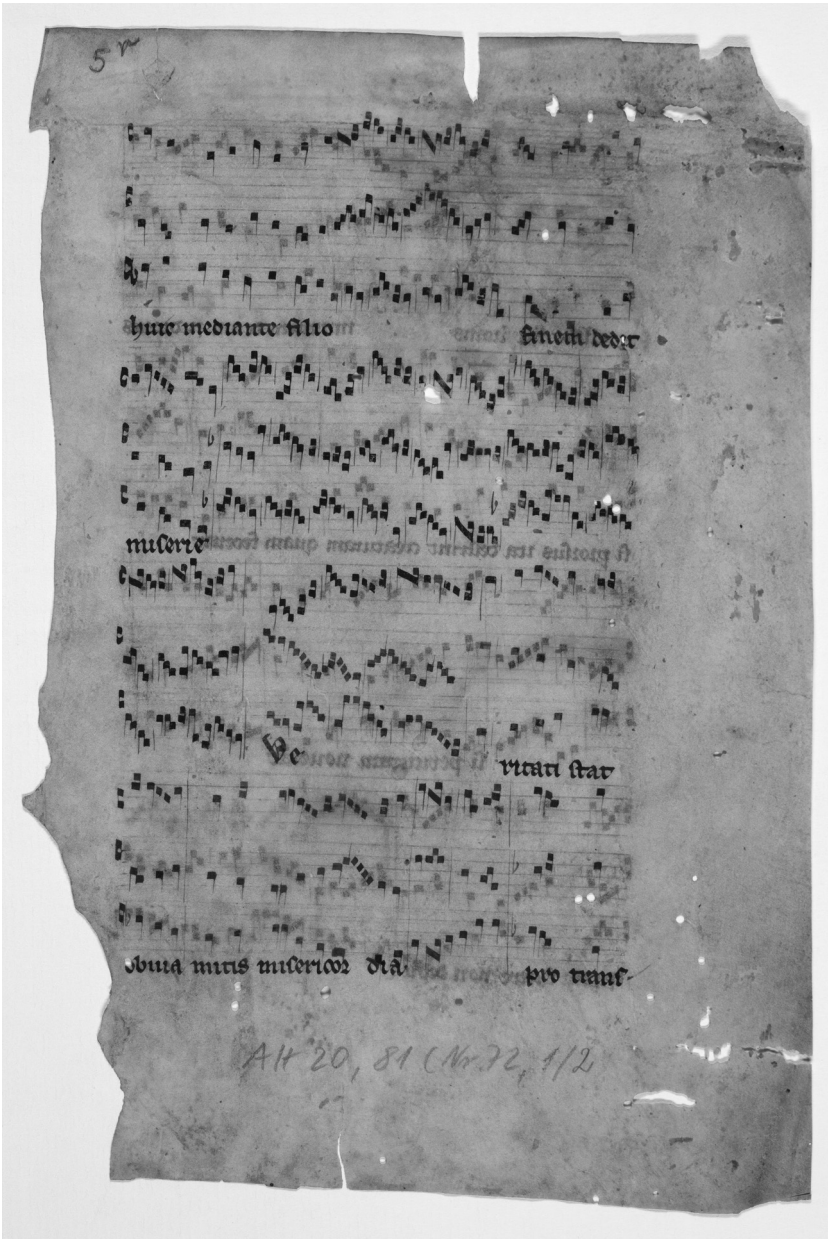 5r
huic mediante filio finem dedit
miserie
Ve ritati stat
obuia mitis misericor dia pro trans-
AH 20, 81 (Nr. 72, 1/2